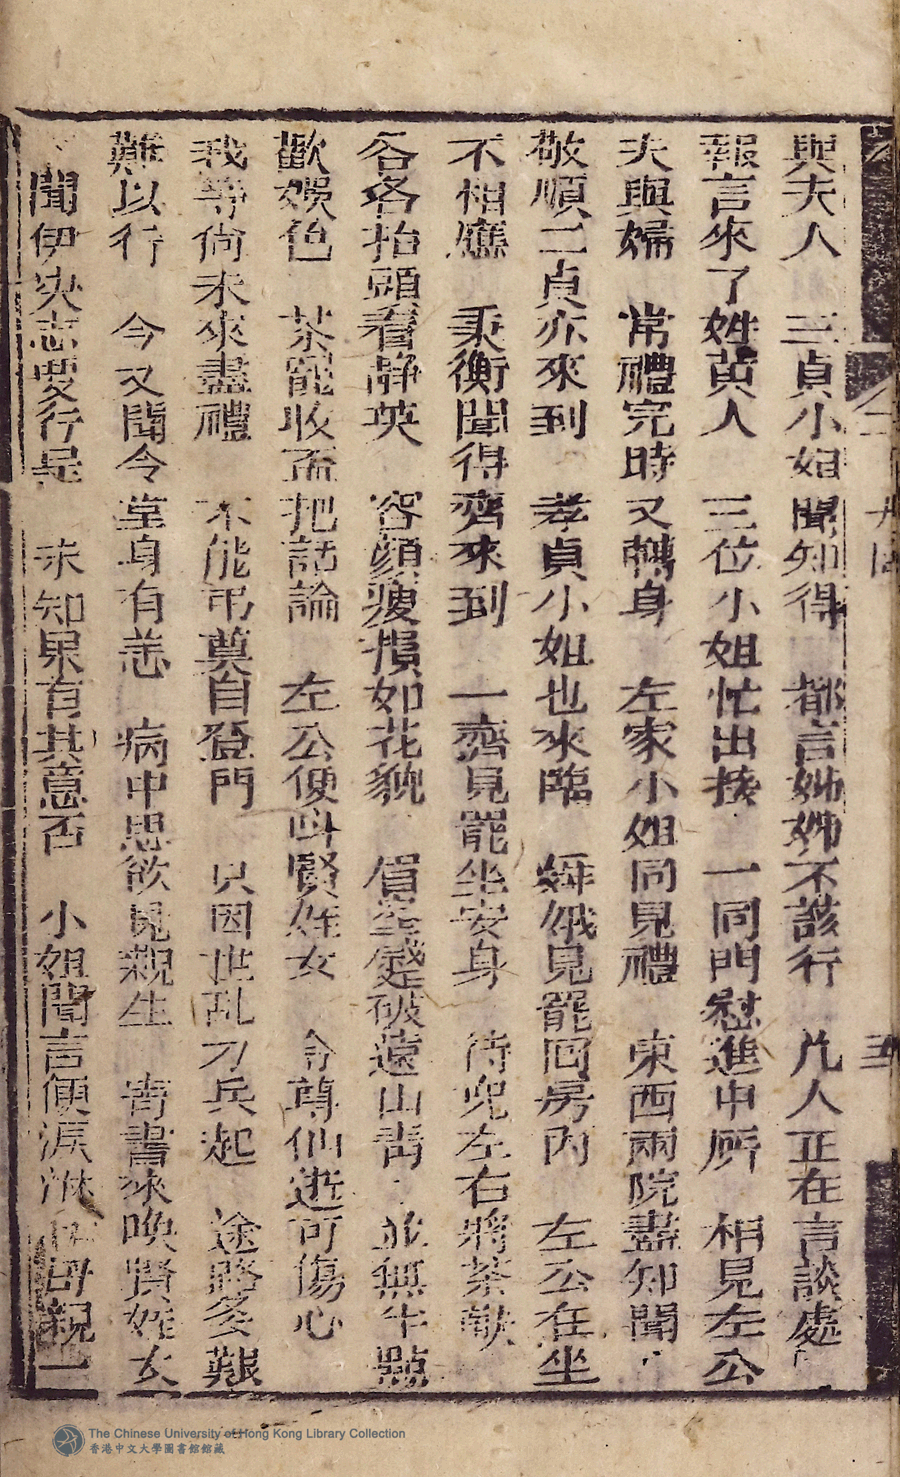 與夫人　三貞小姐聞知得　都言姊姊不該行　凡人正在言談處
報言來了姓黃人　三位小姐忙出接　一同門慰進中所　相見左公
夫與婦　常禮完時又轉身　左家小姐同見禮　東西兩院盡知聞
敬順二貞亦來到　孝貞小姐也來臨　舜娥見罷回房內　左公在坐
不相應　秉衡聞得齊來到　一齊見罷坐安身　侍兒左右將茶献
各各抬頭看静英　容顏瘦損如花貌　眉峯蹙破遠山青　並無半點
歡娛色　茶罷收盃把話論　左公便叫賢姪女　令尊仙逝可傷心
我等尚未來盡禮　不能弔奠自登門　只因世乱刀兵起　途路多艱
難以行　今又聞令堂身有恙　病中思欲見親生　寄書來喚賢姪女
聞伊决志要行是　未知果有其意否　小姐聞言便淚淋　母親一
五
The Chinese University of Hong Kong Library Collection
香港中文大學圖書館館藏